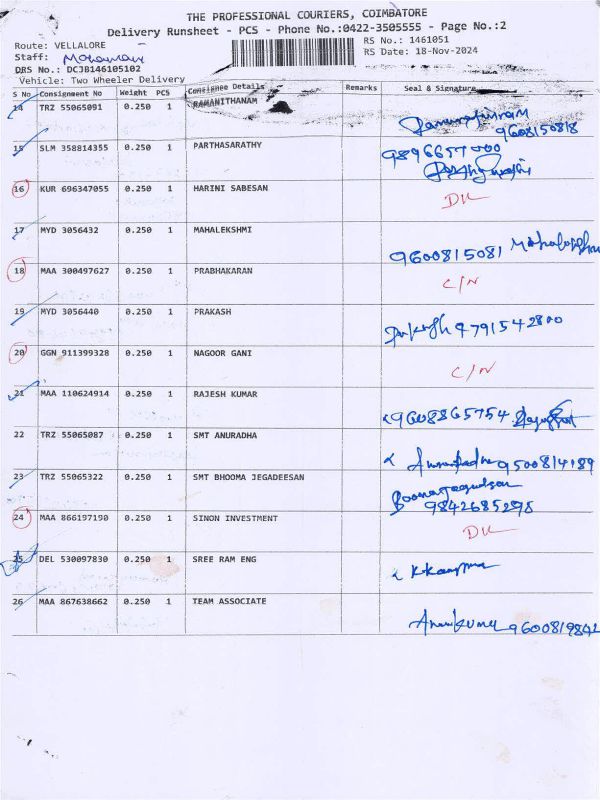 THE PROFESSIONAL COURIERS, COIMBATORE
Delivery Runsheet - PCS - Phone No.:0422-3505555 - Page No.:2
Route: VELLALORE RS No.: 1461051
Staff: RS Date: 18-Nov-2024
DRS No.: DCJB146105102
Vehicle: Two Wheeler Delivery
S No Consignment No Weight PCS Consignee Details Remarks Seal & Signature
14 TRZ 55065091 0.250 1 RAMANITHANAM 9608150818
15 SLM 358814355 0.250 1 PARTHASARATHY 9896657000
16 KUR 696347055 0.250 1 HARINI SABESAN DL
17 MYD 3056432 0.250 1 MAHALEKSHMI 9600815081
18 MAA 300497627 0.250 1 PRABHAKARAN C/N
19 MYD 3056440 0.250 1 PRAKASH 9791542800
20 GGN 911399328 0.250 1 NAGOOR GANI C/N
21 MAA 110624914 0.250 1 RAJESH KUMAR 9608865754
22 TRZ 55065087 0.250 1 SMT ANURADHA 9500814189
23 TRZ 55065322 0.250 1 SMT BHOOMA JEGADEESAN 9842685298
24 MAA 866197190 0.250 1 SINON INVESTMENT DL
25 DEL 530097830 0.250 1 SREE RAM ENG
26 MAA 867638662 0.250 1 TEAM ASSOCIATE 9600819842